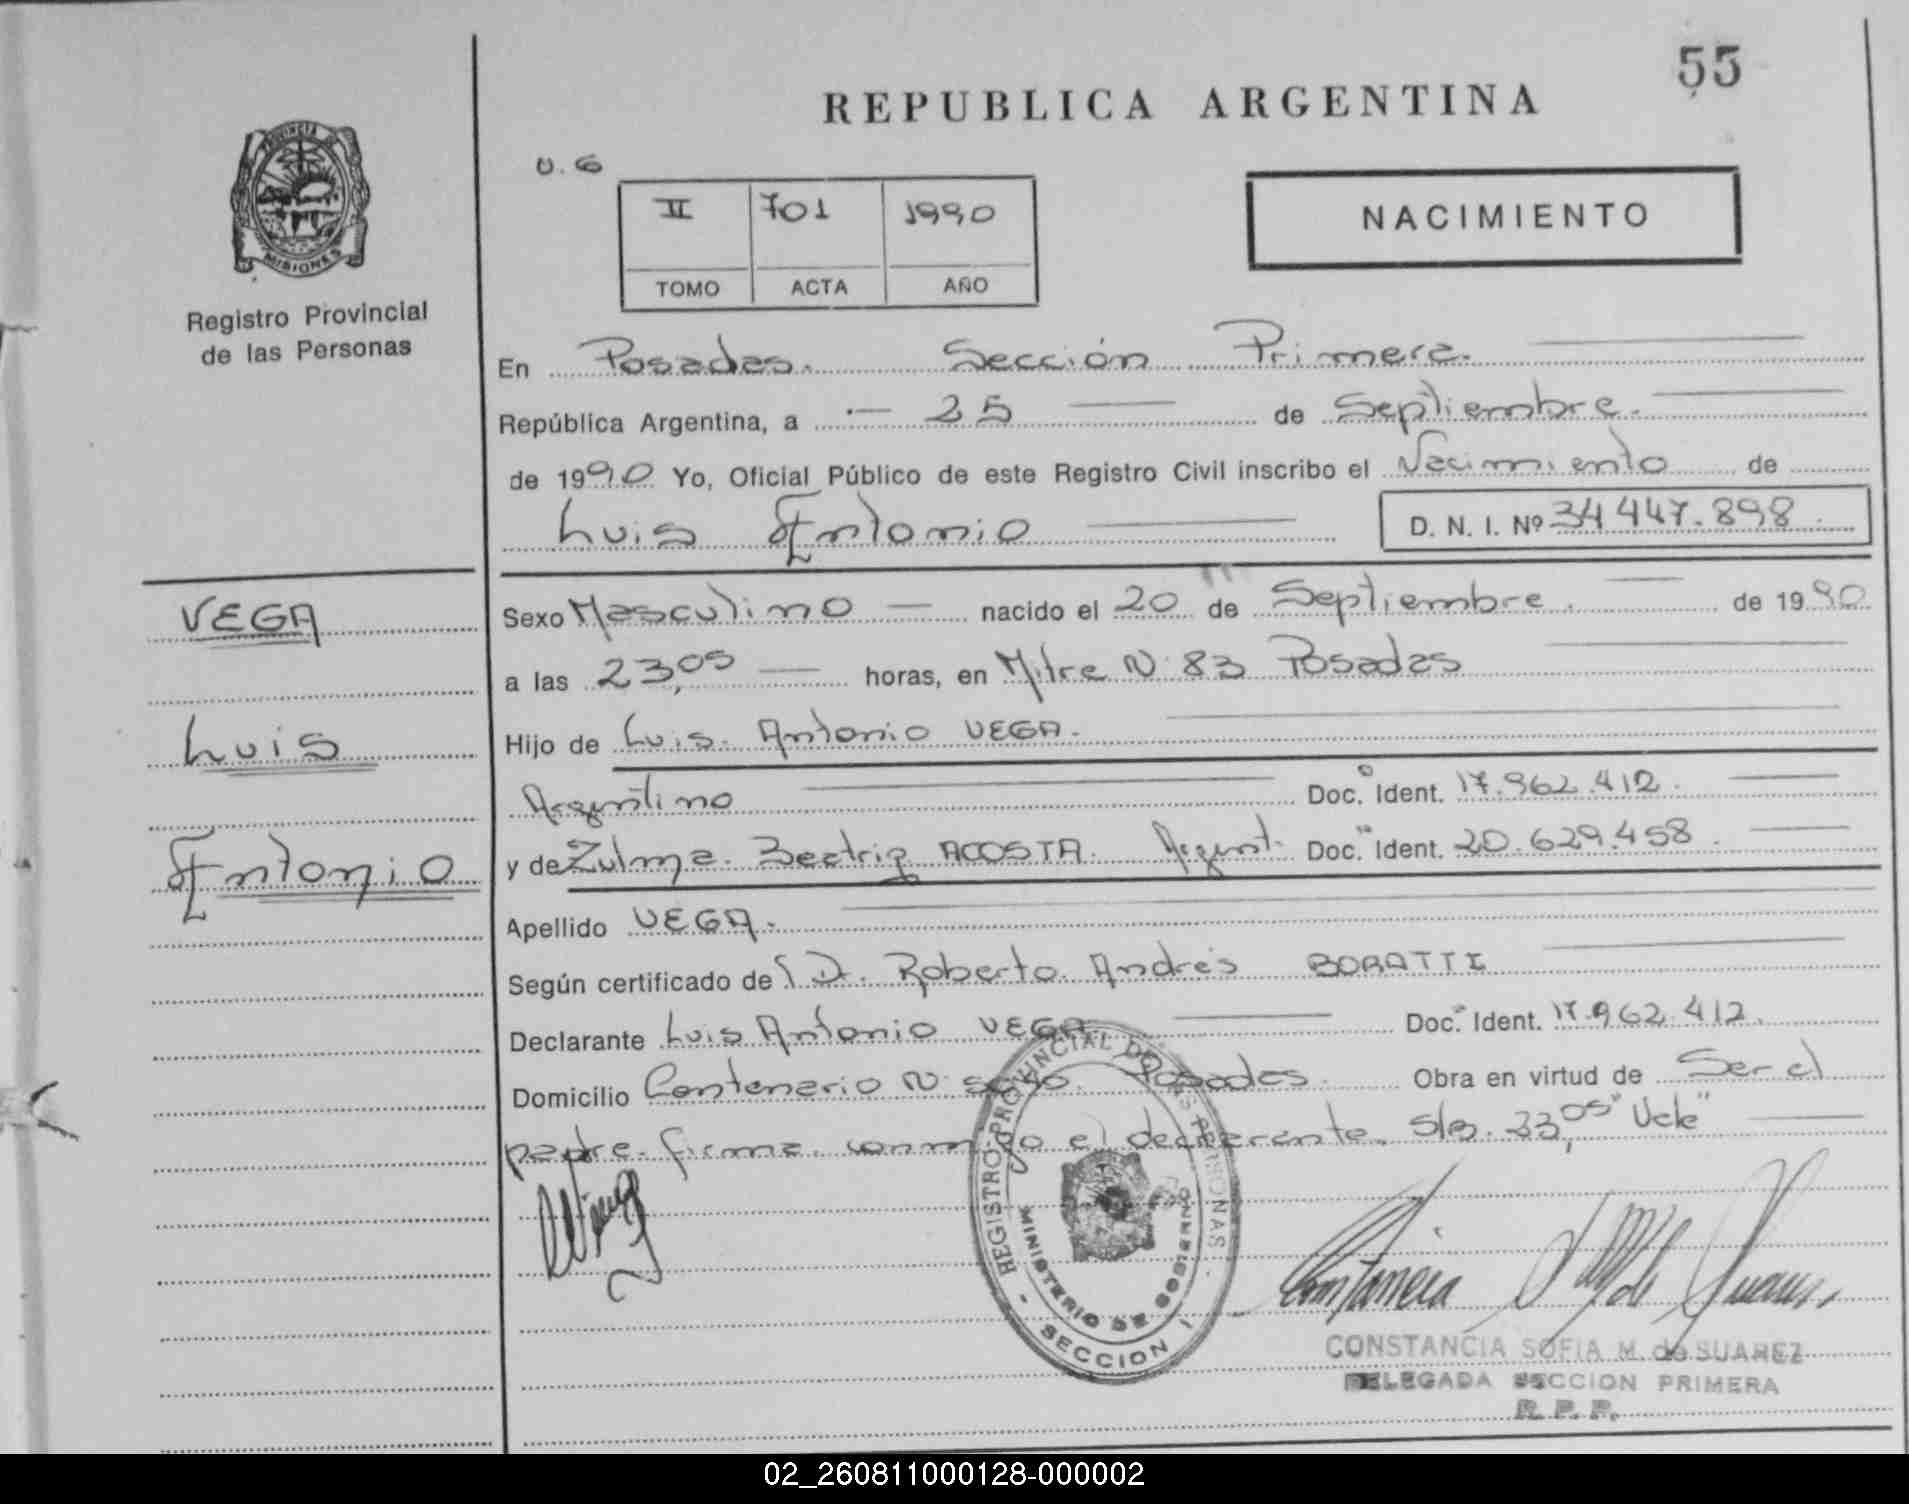 55
REPUBLICA ARGENTINA
U. G
II 701 1990
TOMO ACTA AÑO
NACIMIENTO
PROVINCIA DE MISIONES
Registro Provincial
de las Personas
En Posadas. Sección Primera.
República Argentina, a 25 de Septiembre.
de 1990 Yo, Oficial Público de este Registro Civil inscribo el Nacimiento de
Luis Antonio D. N. I. Nº 34 447.898
VEGA
Luis
Antonio
Sexo Masculino nacido el 20 de Septiembre. de 1990
a las 23,05 horas, en Mitre N: 83 Posadas
Hijo de Luis. Antonio VEGA.
Argentino Doc. Ident. 17.962.412.
y de Zulma. Beatriz ACOSTA. Argent. Doc. Ident. 20.629.458.
Apellido VEGA.
Según certificado de Dr. Roberto Andrés BORATTI
Declarante Luis Antonio VEGA Doc. Ident. 17.962.412.
Domicilio Centenario N: Posadas. Obra en virtud de Ser el
padre. firma. conmigo el declarante. S/B. 23,05" Vale"
REGISTRO PROVINCIAL DE LAS PERSONAS
MINISTERIO DE GOBIERNO
- SECCION I -
CONSTANCIA SOFIA M. de SUAREZ
DELEGADA SECCION PRIMERA
R. P. P.
02_260811000128-000002